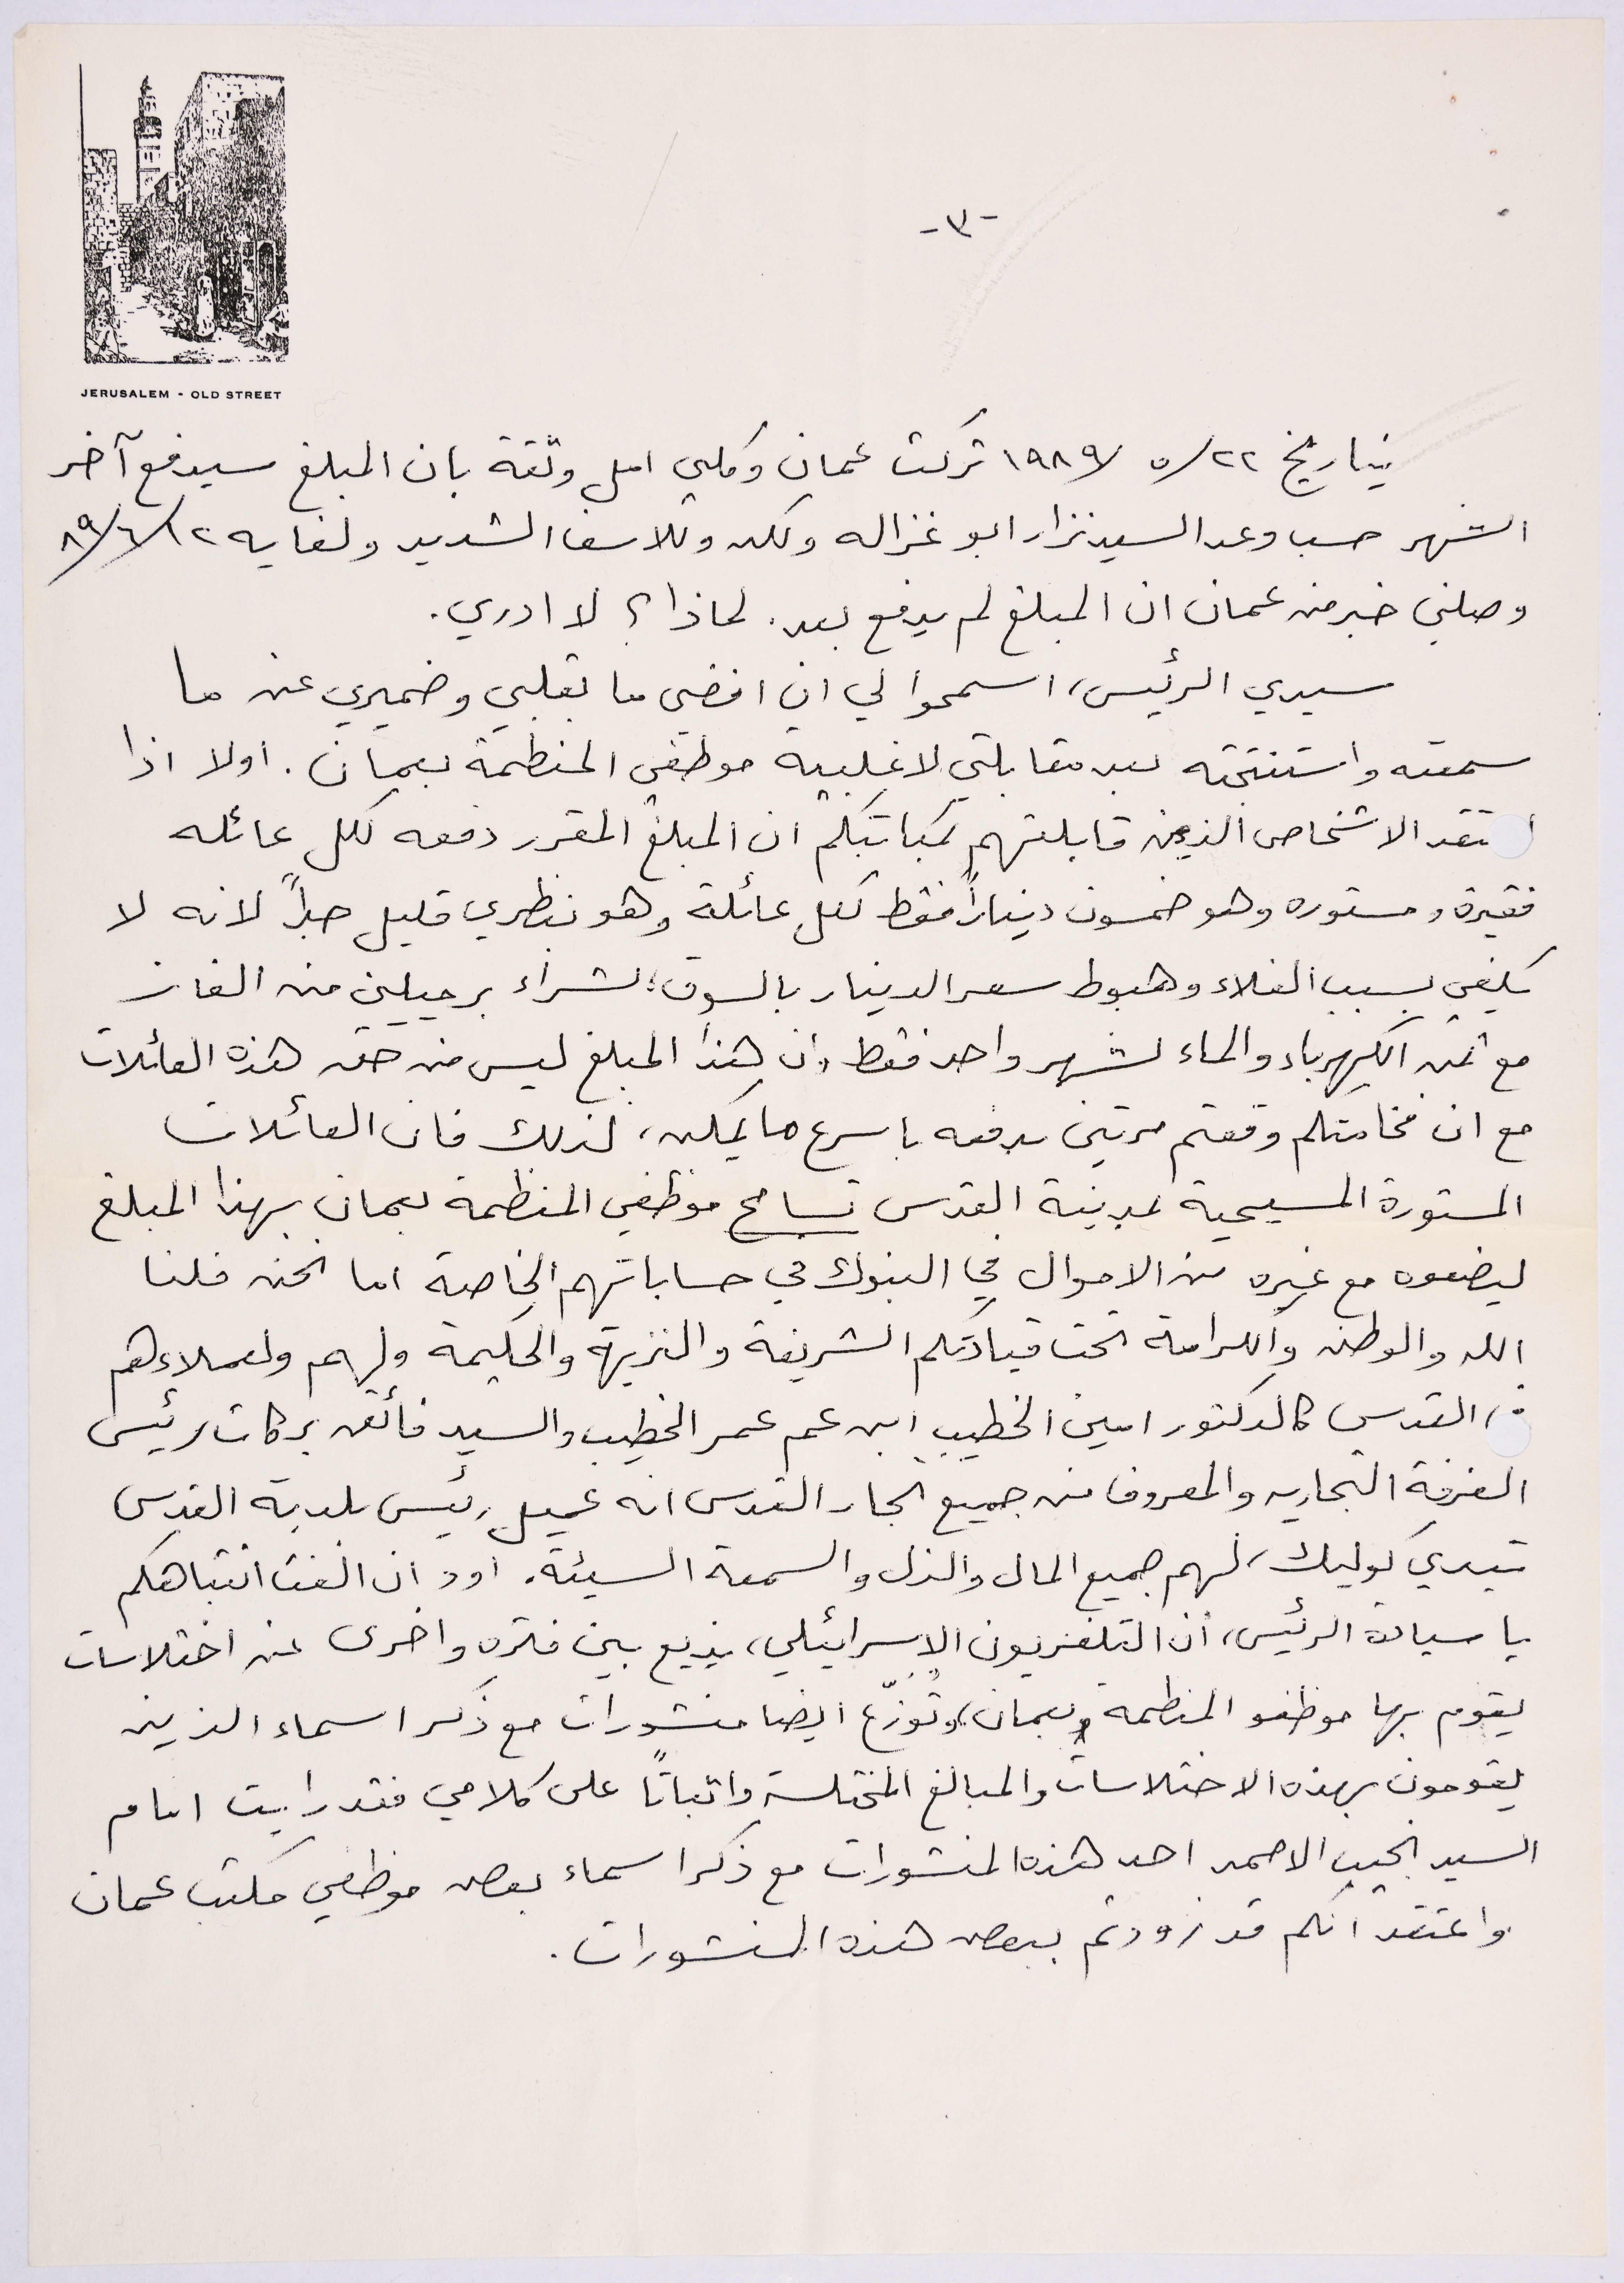 JERUSALEM - OLD STREET
-٣-
بتاريخ ٢٢/ ٥/ ١٩٨٩ تركت عمان وكلي امل وثقة بان المبلغ سيدفع آخر
الشهر حسب وعد السيد نزار ابو غزاله ولكن وللاسف الشديد ولغايه ١٢/ ٦/ ٨٩
وصلني خبر من عمان ان المبلغ لم يدفع بعد. لماذا؟ لا ادري.
سيدي الرئيس، اسمحوا لي ان افضي ما بقلبي وضميري عن ما
سمعته واستنتجته بعد مقابلتي لاغلبية موظفي المنظمة بعمان. اولا اذا
الاشخاص الذين قابلتهم بمكاتبكم ان المبلغ المقرر دفعه لكل عائله
فقيرة ومستوره وهو خمسون ديناراً فقط لكل عائلة وهو بنظري قليل جداً لانه لا
يكفي بسبب الغلاء وهبوط سعر الدينار بالسوق، لشراء برميلين من الغاز
مع ثمن الكهرباء والماء لشهر واحد فقط، ان هذا المبلغ ليس من حق هذه العائلات
مع ان فخامتكم وقعتم مرتين بدفعه باسرع ما يمكن، لذلك فان العائلات
المستورة المسيحية بمدينة القدس تسامح موظفي المنظمة بعمان بهذا المبلغ
ليضعوه مع غيره من الاموال في البنوك في حساباتهم الخاصة اما نحن فلنا
الله والوطن والكرامة تحت قيادتكم الشريفة والنزيهة والحكيمة ولهم ولعملاءهم
في القدس كالدكتور امين الخطيب ابن عم عمر الخطيب والسيد فائق بركات رئيس
الغرفة التجاريه والمعروف من جميع تجار القدس انه عميل رئيس بلدية القدس
تيدي كوليك، لهم جميع المال والذل والسمعة السيئة. اود ان الفت انتباهكم
يا سيادة الرئيس، ان التلفزيون الاسرائيلي، يذيع بين فتره واخرى عن اختلاسات
يقوم بها موظفو المنظمة بعمان، وتُوزّع ايضا منشورات مع ذكر اسماء الذين
يقومون بهذه الاختلاسات والمبالغ المختلسة واثباتاً على كلامي فقد رايت امام
السيد نجيب الاحمد احد هذه المنشورات مع ذكر اسماء بعض موظفي مكتب عمان
واعتقد انكم قد زودتم ببعض هذه المنشورات.